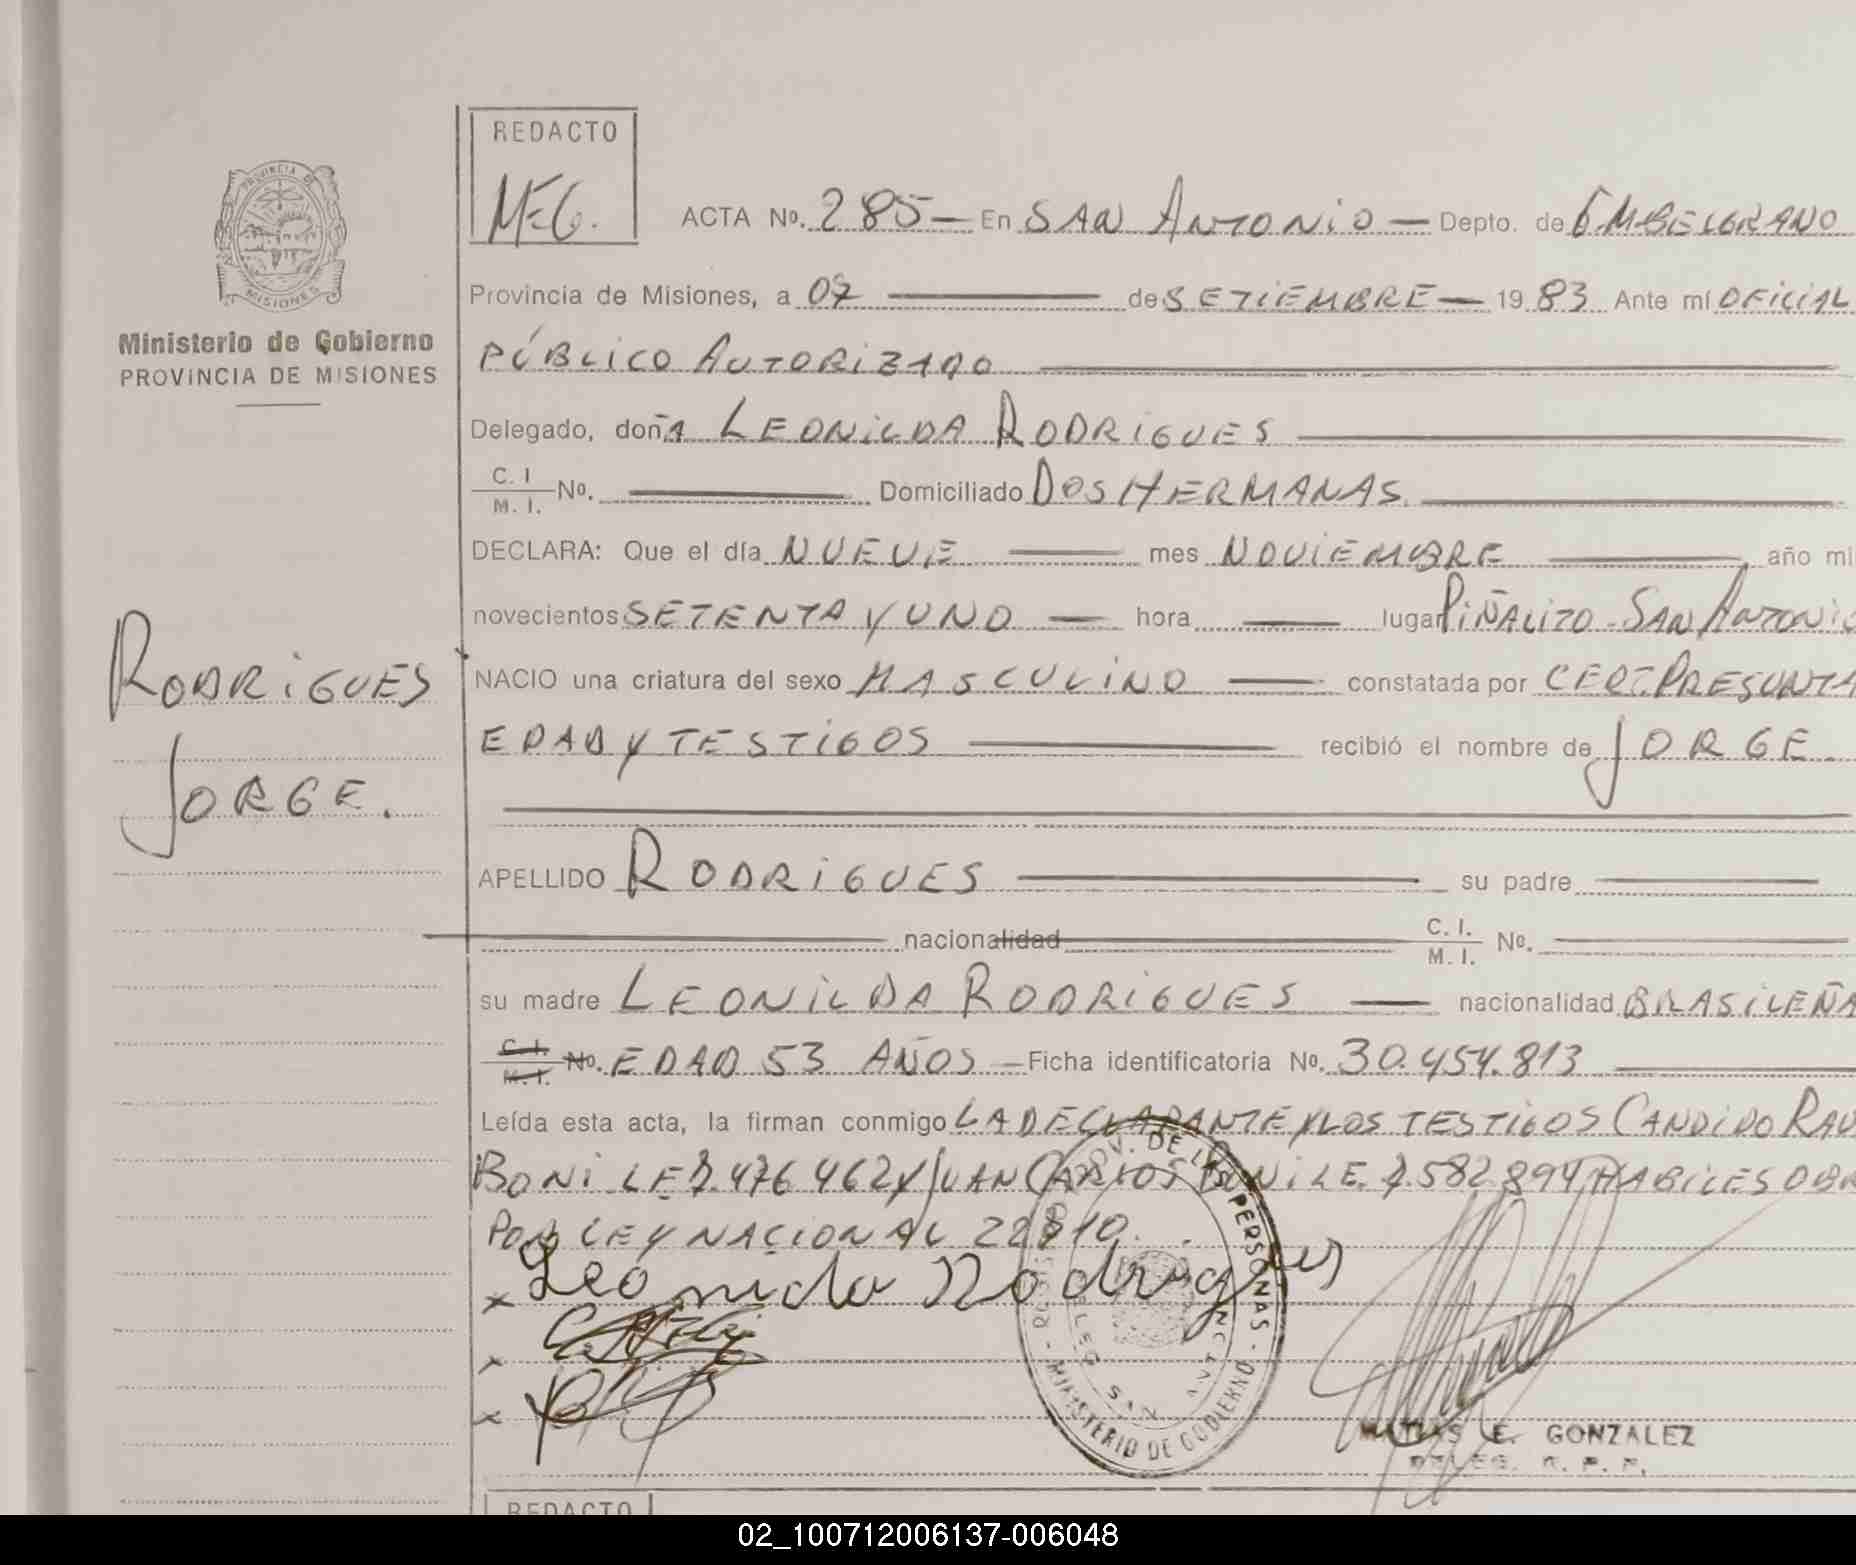 REDACTO
M.E.G.
ACTA Nº. 285 — En SAN ANTONIO — Depto. de GM. BELGRANO
PROVINCIA DE
MISIONES
Provincia de Misiones, a 07 — de SETIEMBRE — 19 83 Ante mí OFICIAL
Ministerio de Gobierno
PROVINCIA DE MISIONES
PÚBLICO AUTORIZADO
Delegado, doña LEONILDA RODRIGUES
C. I. / M. I. Nº. — Domiciliado DOS HERMANAS.
DECLARA: Que el día NUEVE — mes NOVIEMBRE — año mi
novecientos SETENTA Y UNO — hora — lugar PIÑALITO - SAN ANTONIO
RODRIGUES
JORGE.
NACIO una criatura del sexo MASCULINO — constatada por CERT. PRESUNTA
EDAD Y TESTIGOS — recibió el nombre de JORGE.
APELLIDO RODRIGUES — su padre —
nacionalidad — C. I. / M. I. Nº. —
su madre LEONILDA RODRIGUES — nacionalidad BRASILEÑA
C. I. / M. I. Nº. EDAD 53 AÑOS — Ficha identificatoria Nº. 30.454.813
Leída esta acta, la firman conmigo LA DECLARANTE Y LOS TESTIGOS CANDIDO RAU
BONI LE 7.476.462 Y JUAN CARLOS BONI LE. 7.582.894 HABILES OBR
POR LEY NACIONAL 22810.
x Leonida Rodrigues
x
x
PROV. DE LAS PERSONAS
MINISTERIO DE GOBIERNO
SAN ANT
MATIAS E. GONZALEZ
DELEG. R. P. P.
REDACTO
02_100712006137-006048